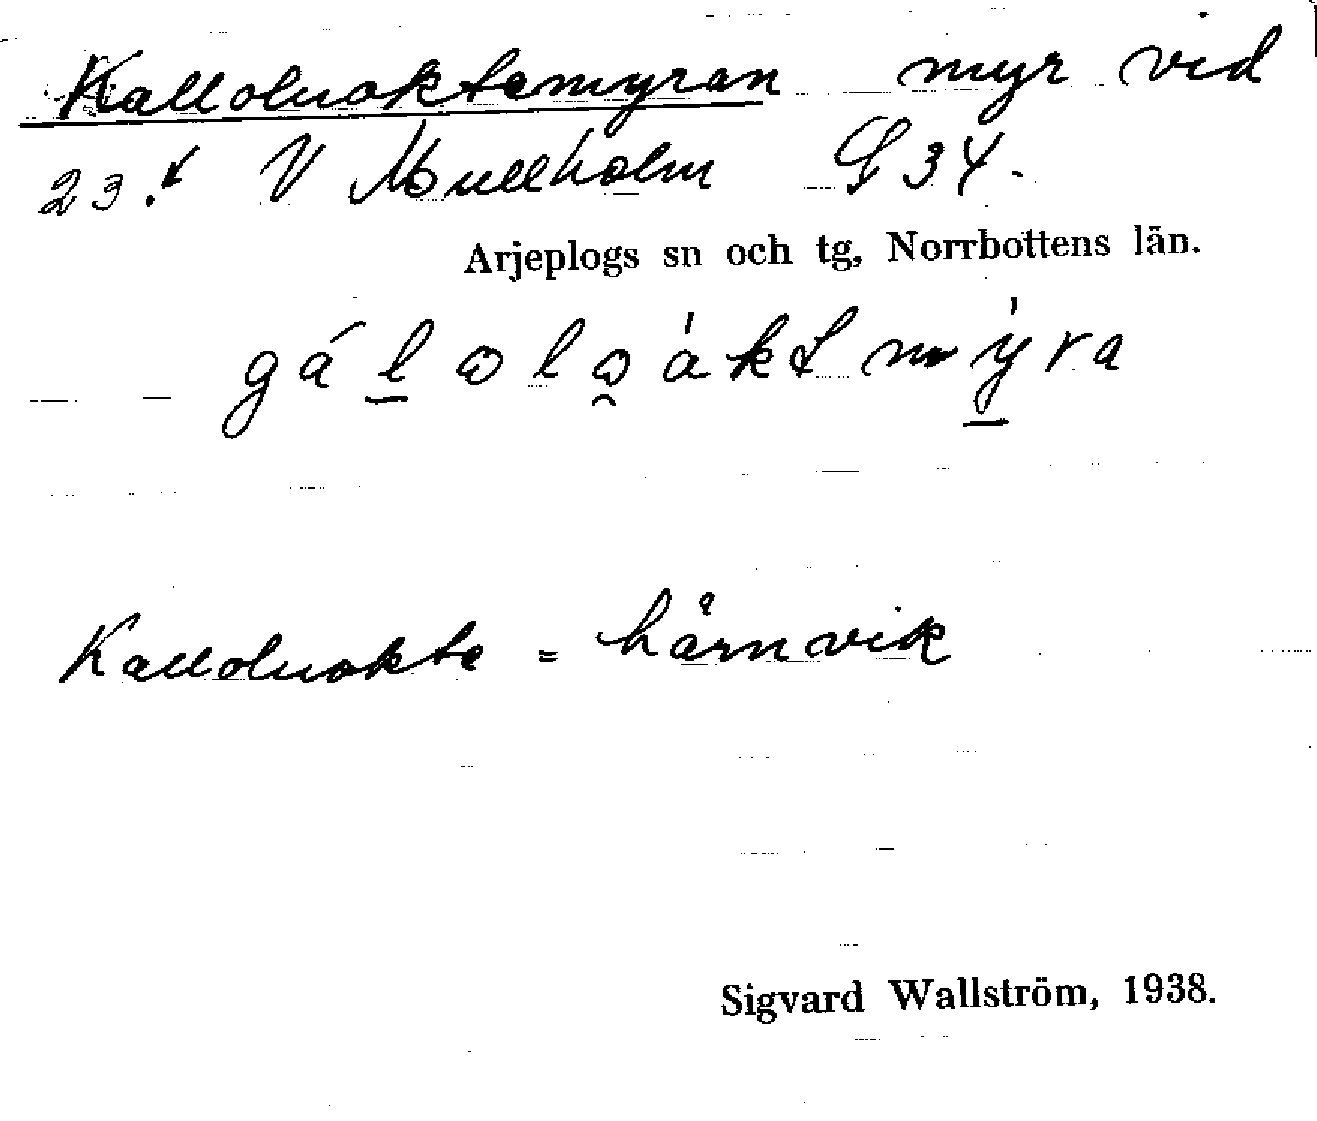 Kalloluoktemyran myr vid
23. V Mullholm S 34.
Arjeplogs sn och tg, Norrbottens län.
Kalloluokte = hårnvik
Sigvard Wallström, 1938.